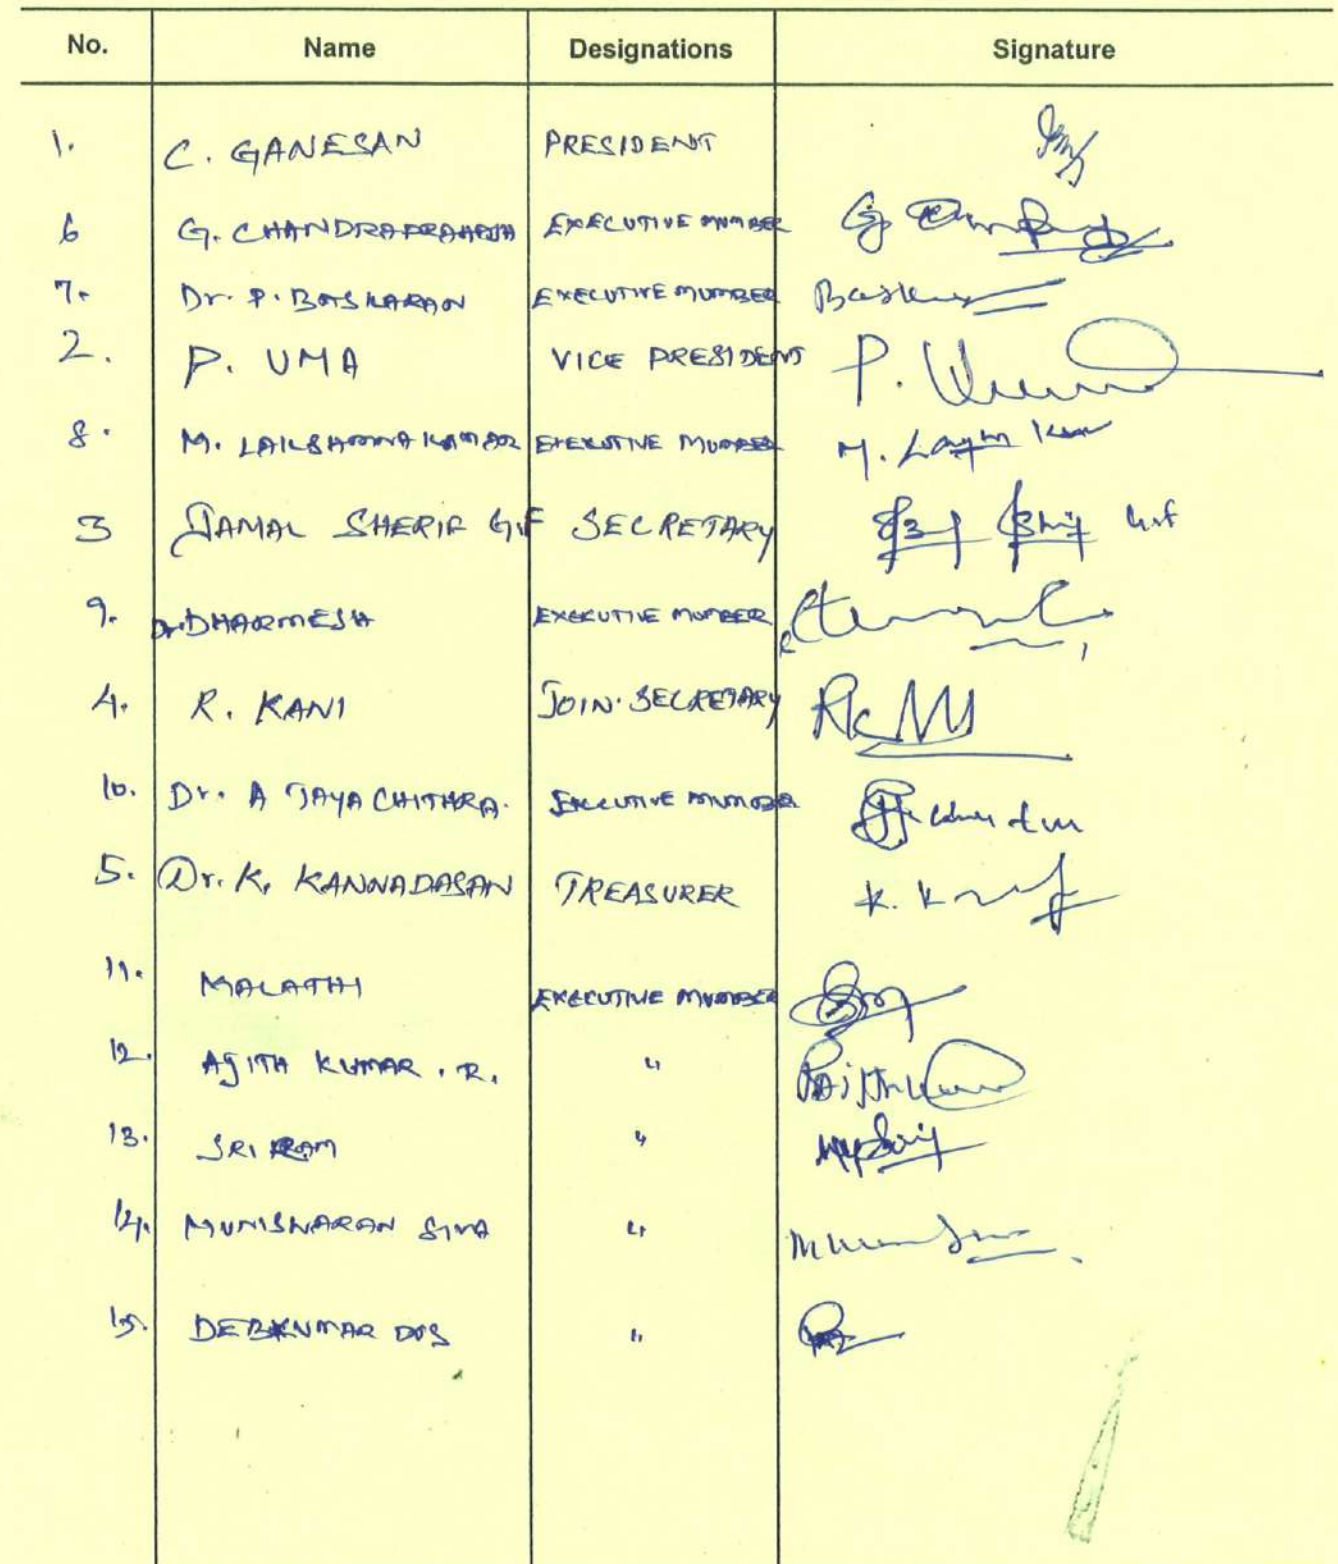 No. Name Designations Signature
1. C. GANESAN PRESIDENT
6 G. CHANDRAPRAKASH EXECUTIVE MUMBER
7. Dr. P. BASKARAN EXECUTIVE MUMBER Baskar
2. P. UMA VICE PRESIDENT P. Uma
8. M. LAKSHMANA KUMAR EXEXUTIVE MUMBER
3 JAMAL SHERIF G.F SECRETARY
9. Dr. DHARMESH EXECUTIVE MUMBER
4. R. KANI JOIN. SECRETARY
10. Dr. A JAYA CHITHRA. EXECUTIVE MUMBER
5. Dr. K. KANNADASAN TREASURER
11. MALATHI EXECUTIVE MUMBER
12. AJITH KUMAR . R. "
13. SRI RAM "
14. MUNISWARAN SIVA "
15. DEBKUMAR DOS "